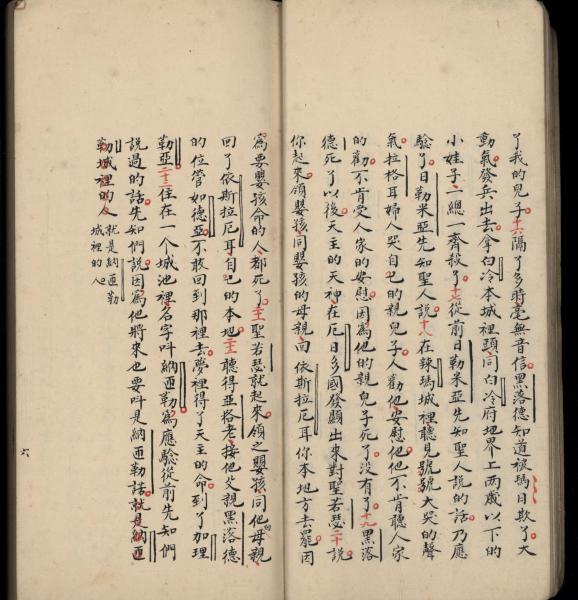 了我的兒子十六隔了多時毫無音信黑落德知道被瑪日欺了大
動氣發兵出去拿白冷本城裡頭同白冷府地界上两歲以下的
小娃子一總一齊殺了十七從前日勒米亞先知聖人說的話乃應
驗了日勒米亞先知聖人說十八在辣瑪城裡聽見號號大哭的聲
氣拉格耳婦人哭自己的親兒子人勸他安慰他他不肯聽人家
的勸不肯受人家的安慰因為他的親兒子死了沒有了十九黑落
德死了以後天主的天神在厄日多國發顯出來對聖若瑟二十說
你起來領嬰孩同嬰孩的母親向依斯拉厄耳你本地方去罷因
為要嬰孩命的人都死了二一聖若瑟就起來領之嬰孩同他的母親
回了依斯拉厄耳自己的本地二二聽得亞格老接他父親黑落德
的位管如德亞不敢回到那裡去夢裡得了天主的命到了加理
勒亞二十三住在一个城池裡名字呌納匝勒為應驗從前先知們
說過的話先知們說因為他將來也要呌是納匝勒話就是納匝
勒城裡的人 就是納匝勒
城裡的人
六